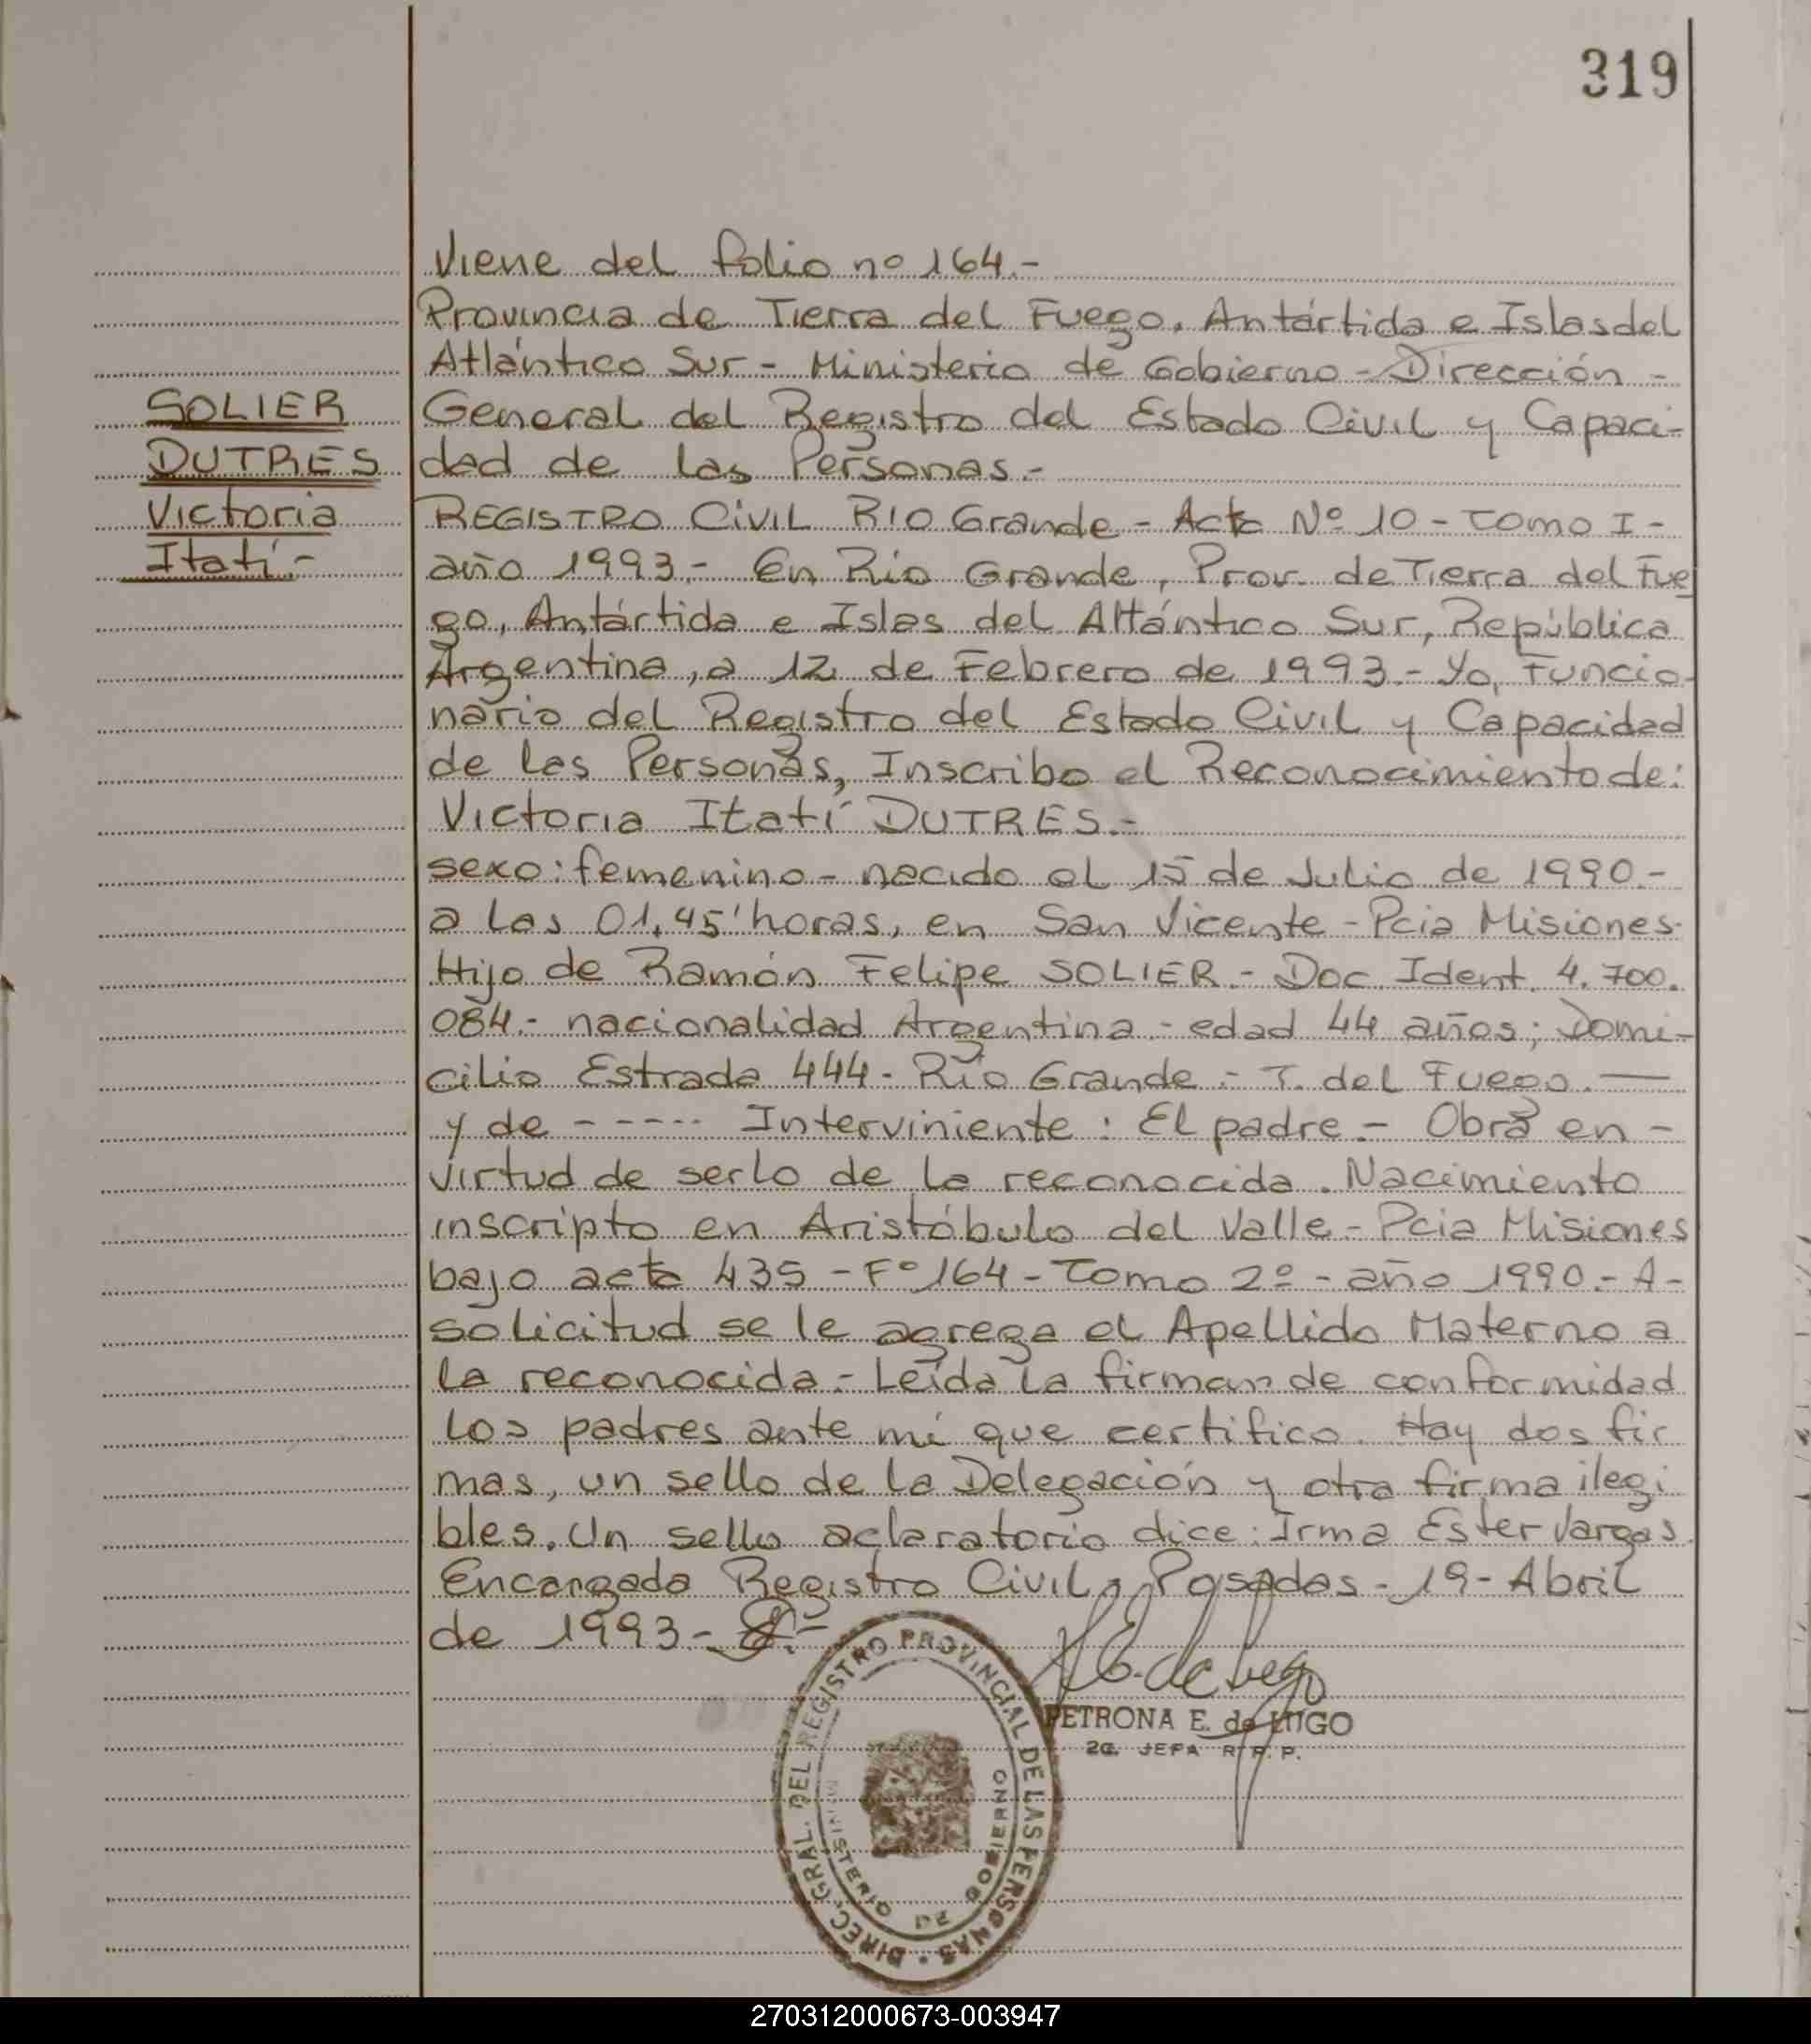 319
Viene del folio nº 164.-
Provincia de Tierra del Fuego, Antártida e Islas del
Atlántico Sur - Ministerio de Gobierno - Dirección -
SOLIER
General del Registro del Estado Civil y Capaci-
DUTRES
dad de las Personas.-
Victoria
REGISTRO CIVIL RIO Grande - Acta Nº 10 - Tomo I -
Itatí.-
año 1993.- En Río Grande, Prov. de Tierra del Fue
go, Antártida e Islas del Atlántico Sur, República
Argentina, a 12 de Febrero de 1993.- Yo, Funcio-
nario del Registro del Estado Civil y Capacidad
de las Personas, Inscribo el Reconocimiento de:
Victoria Itatí DUTRES.-
sexo: femenino - nacido el 15 de Julio de 1990.-
a las 01,45' horas, en San Vicente - Pcia Misiones.
Hijo de Ramón Felipe SOLIER.- Doc. Ident. 4.700.
084.- nacionalidad Argentina - edad 44 años; Domi-
cilio Estrada 444 - Río Grande - T. del Fuego. —
y de - - - - - Interviniente: El padre.- Obra en -
virtud de serlo de la reconocida. Nacimiento
inscripto en Aristóbulo del Valle - Pcia Misiones
bajo acta 435 - Fº 164 - Tomo 2º - año 1990.- A -
solicitud se le agrega el Apellido Materno a
la reconocida.- Leída la firman de conformidad
los padres ante mí que certifico. Hay dos fir
mas, un sello de la Delegación y otra firma ilegi
bles. Un sello aclaratorio dice: Irma Ester Vargas.
Encargada Registro Civil, Posadas - 19 - Abril
de 1993.-
DIREC. GRAL. DEL REGISTRO PROVINCIAL DE LAS PERSONAS
MINISTERIO DE GOBIERNO
PETRONA E. de LUGO
2a. JEFA R. P. P.
270312000673-003947